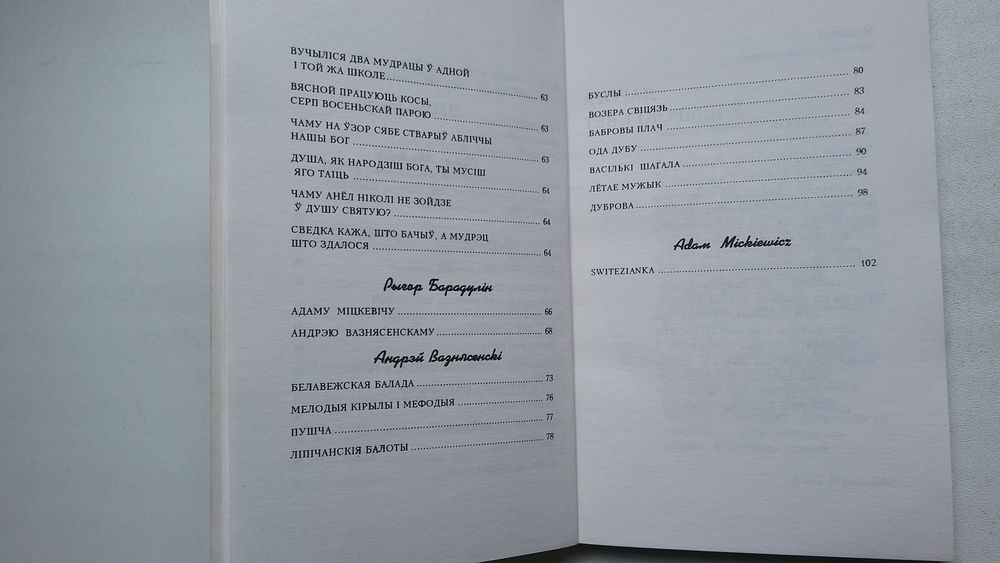 ВУЧЫЛІСЯ ДВА МУДРАЦЫ Ў АДНОЙ
І ТОЙ ЖА ШКОЛЕ.......... 63
ВЯСНОЙ ПРАЦУЮЦЬ КОСЫ,
СЕРП ВОСЕНЬСКАЙ ПАРОЮ .......... 63
ЧАМУ НА ЎЗОР СЯБЕ СТВАРЫЎ АБЛІЧЧЫ
НАШЫ БОГ .......... 63
ДУША, ЯК НАРОДЗІШ БОГА, ТЫ МУСІШ
ЯГО ТАІЦЬ .......... 64
ЧАМУ АНЁЛ НІКОЛІ НЕ ЗОЙДЗЕ
Ў ДУШУ СВЯТУЮ? .......... 64
СВЕДКА КАЖА, ШТО БАЧЫЎ, А МУДРЭЦ
ШТО ЗДАЛОСЯ .......... 64
Рыгор Барадулін
АДАМУ МІЦКЕВІЧУ .......... 66
АНДРЭЮ ВАЗНЯСЕНСКАМУ .......... 68
Андрэй Вазнясенскі
БЕЛАВЕЖСКАЯ БАЛАДА .......... 73
МЕЛОДЫЯ КІРЫЛЫ І МЕФОДЫЯ .......... 76
ПУШЧА .......... 77
ЛІПІЧАНСКІЯ БАЛОТЫ .......... 78
БУСЛЫ .......... 80
ВОЗЕРА СВІЦЯЗЬ .......... 83
БАБРОВЫ ПЛАЧ .......... 84
ОДА ДУБУ .......... 87
ВАСІЛЬКІ ШАГАЛА .......... 90
ЛЁТАЕ МУЖЫК .......... 94
ДУБРОВА .......... 98
Adam Mickiewicz
SWITEZIANKA .......... 102